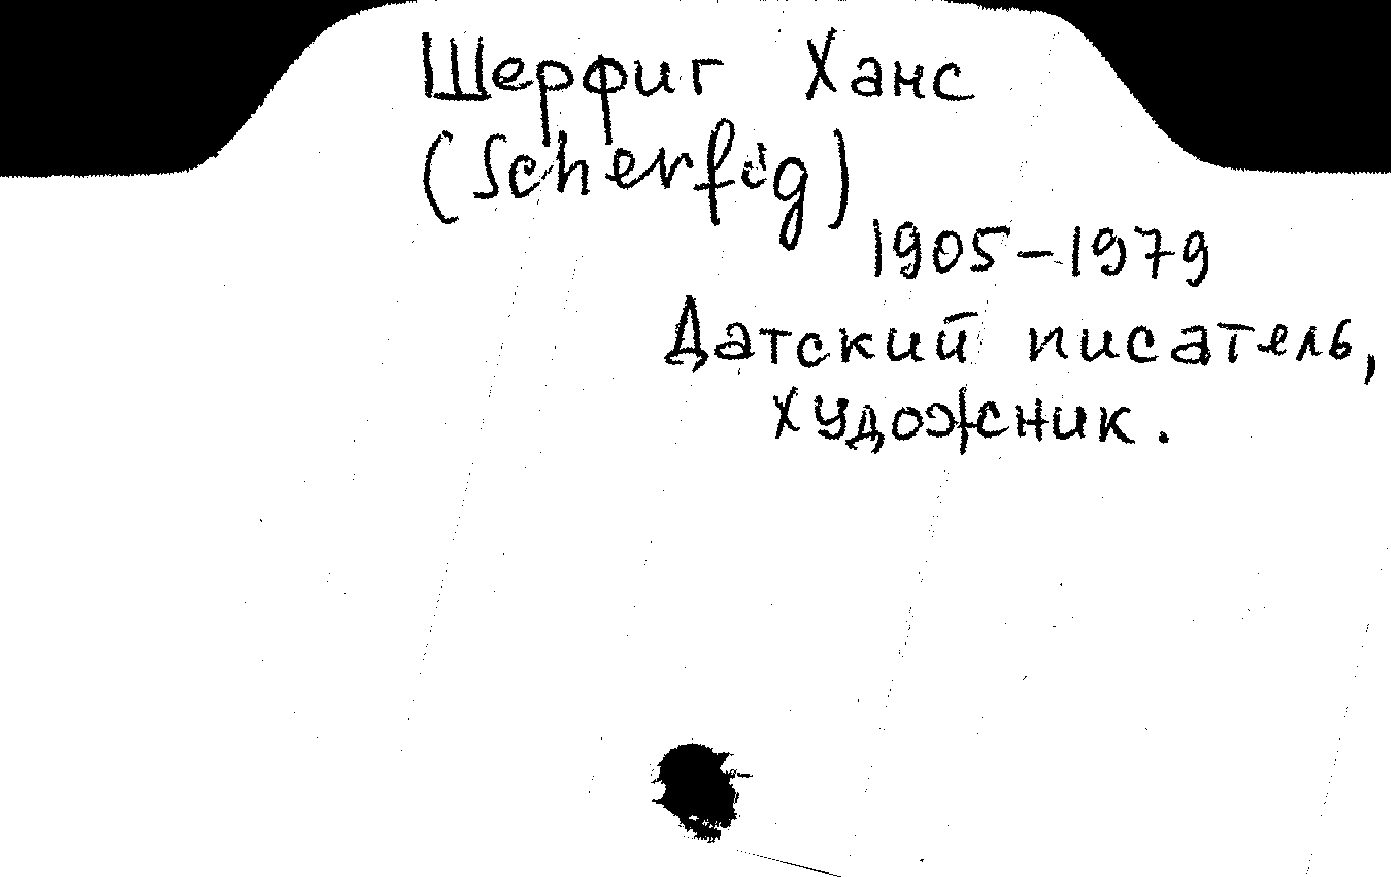 Шерфиг Ханс
(Scherfig)
1905-1979
Датский писатель,
художник.